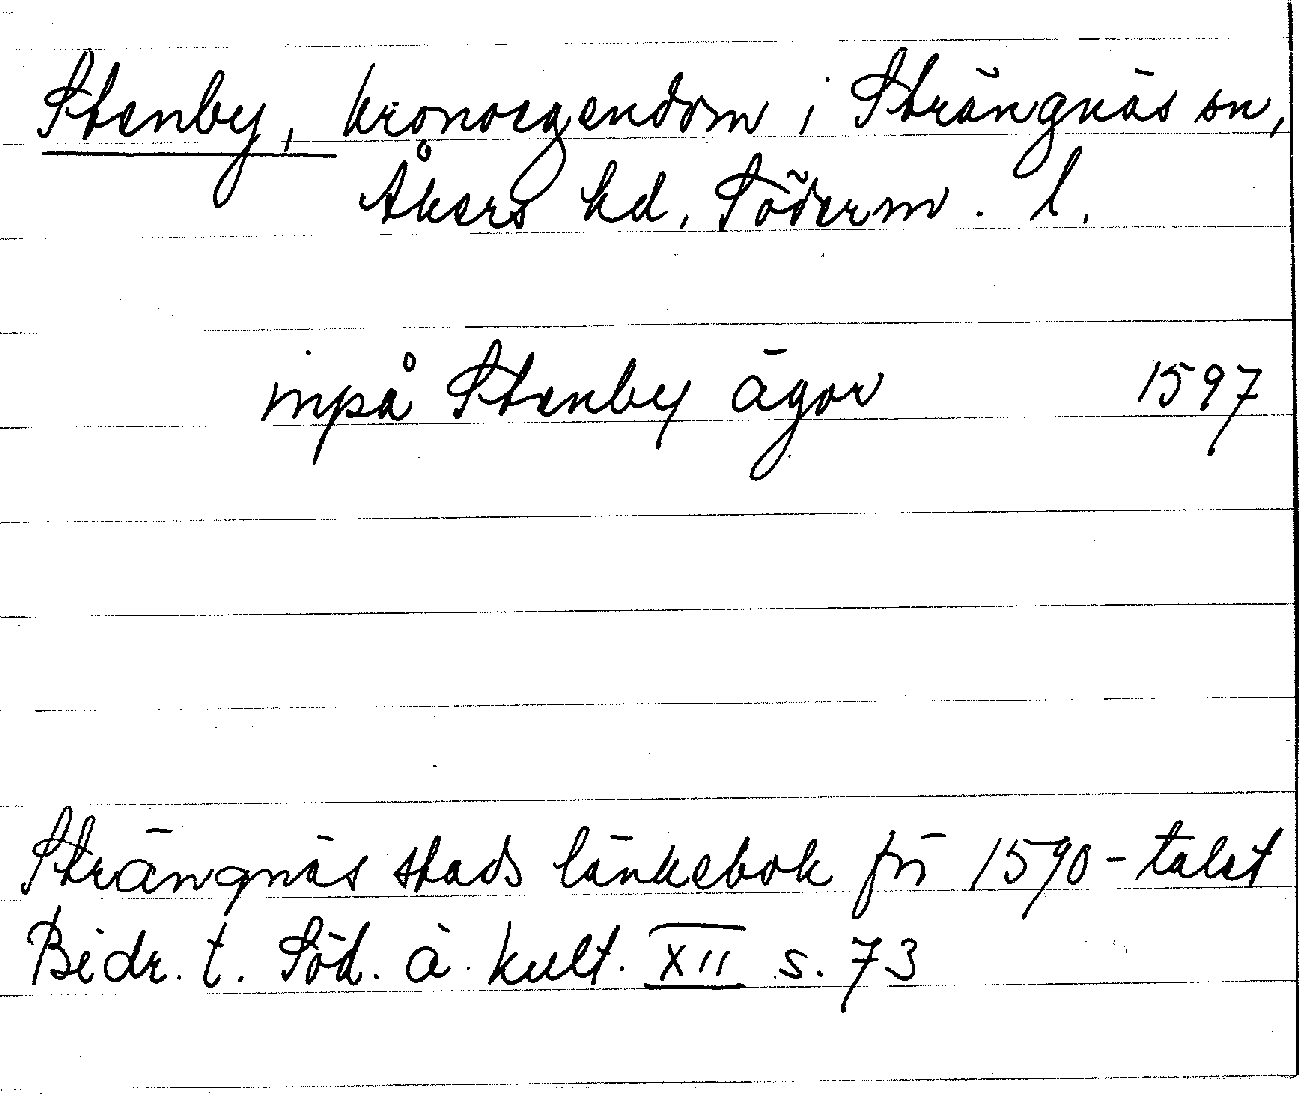 Stenby, kronoegendom i Strängnäs sn,
Åkers hd, Söderm. l.
inpå Stenby ägor 1597
Strängnäs stads tänkebok fr 1590-talet
Bidr. t. Söd. ä. kult. XII s. 73